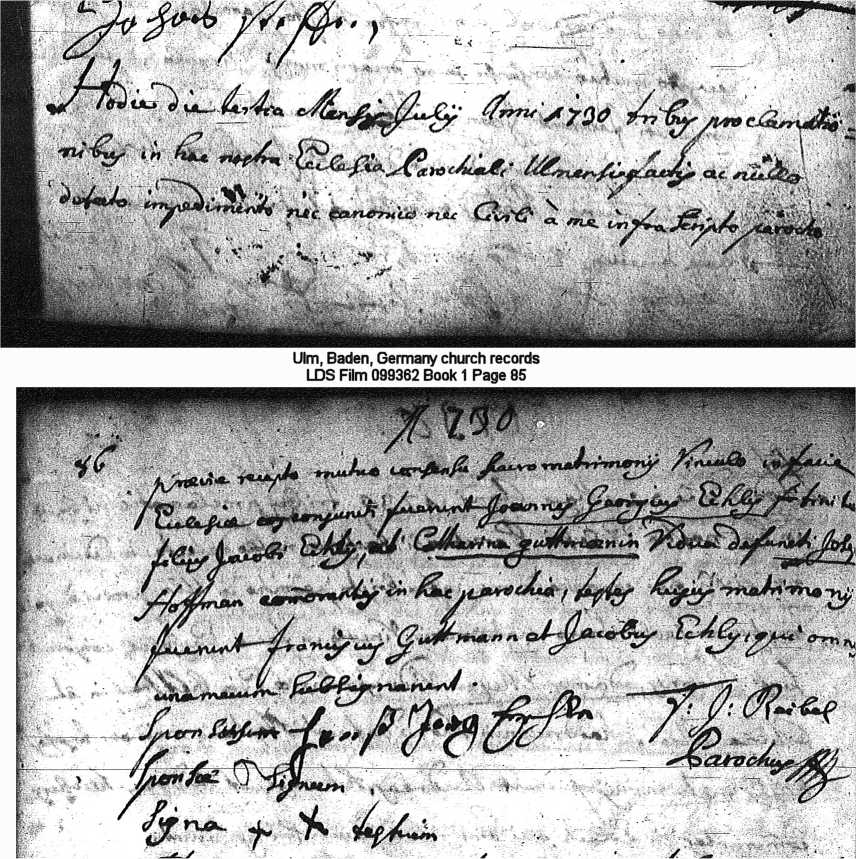 Hodie die tertia Mensis Julij Anni 1730 tribus proclamatio
nibus in hac nostra Ecclesia Parochiali Ulmensi factis ac nullo
detecto impedimento nec canonico nec Civili à me infra scripto parocho
Ulm, Baden, Germany church records
LDS Film 099362 Book 1 Page 85
1730
86
recepto mutuo consensu sacro matrimonij Vinculo in facie
Ecclesiæ conjuncti fuerunt Joannes Georgius Echly
filius Jacobi Echly, et Catharina guttmanin Vidua defuncti
Hoffman commorantis in hac parochia, testes hujus matrimonij
fuerunt franciscus Guttmann et Jacobus Echly, qui
una mecum subsignarunt.
Jerg
J: Reibel
Parochus
sponsæ signum
signa + + testium